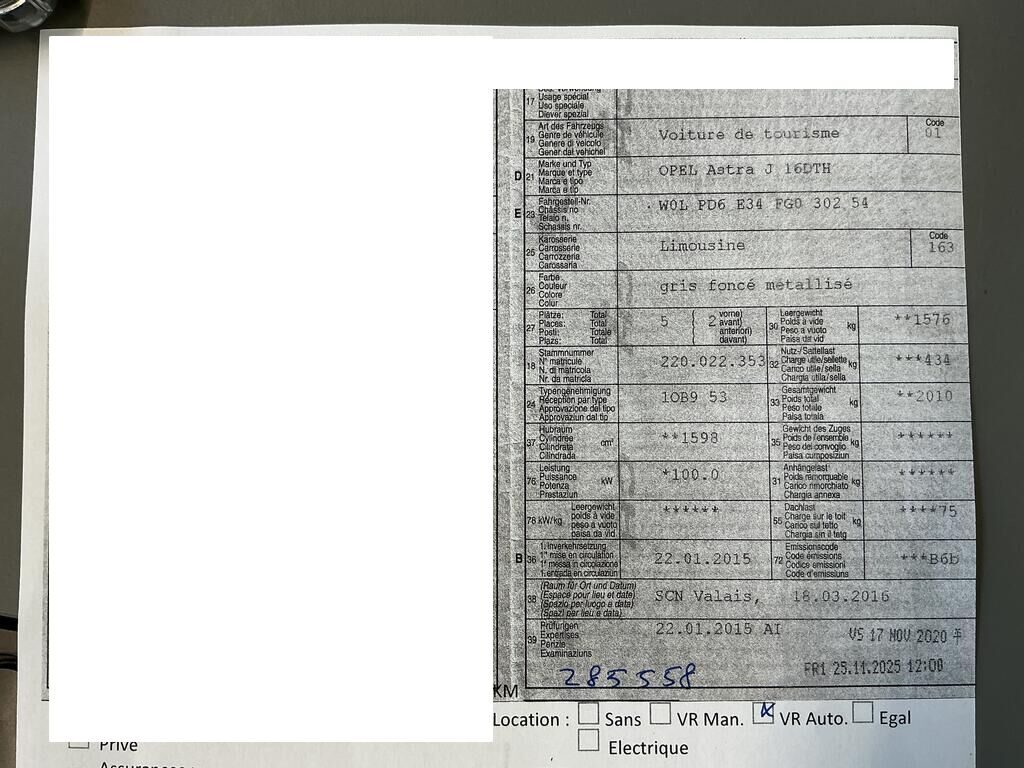 Usage spécial
17 Uso speciale
Diever spezial
Art des Fahrzeugs
19 Genre de véhicule Voiture de tourisme Code
Genere di veicolo 01
Gener dal vehichel
Marke und Typ
D 21 Marque et type OPEL Astra J 16DTH
Marca e tipo
Marca e tip
Fahrgestell-Nr.
E 23 Châssis no W0L PD6 E34 FG0 302 54
Telaio n.
Schassis nr.
Karosserie
25 Carrosserie Limousine Code
Carrozzeria 163
Carossaria
Farbe
26 Couleur gris foncé métallisé
Colore
Colur
Plätze: Total vorne)
27 Places: Total 5 ( 2 avant)
Posti: Totale anteriori)
Plazs: Total davant)
Leergewicht
30 Poids à vide kg **1576
Peso a vuoto
Paisa da vid
Stammnummer
18 N° matricule 220.022.353
N. di matricola
Nr. da matricla
Nutz-/Sattellast
32 Charge utile/sellette kg ***434
Carico utile/sella
Chargia utila/sella
Typengenehmigung
24 Réception par type 1OB9 53
Approvazione del tipo
Approvaziun dal tip
Gesamtgewicht
33 Poids total kg **2010
Peso totale
Paisa totala
Hubraum
37 Cylindrée cm³ **1598
Cilindrata
Cilindrada
Gewicht des Zuges
35 Poids de l'ensemble kg ******
Peso del convoglio
Paisa cumposiziun
Leistung
76 Puissance kW *100.0
Potenza
Prestaziun
Anhängelast
31 Poids remorquable kg ******
Carico rimorchiato
Chargia annexa
Leergewicht
78 kW/kg poids à vide ******
peso a vuoto
paisa da vid
Dachlast
55 Charge sur le toit kg ****75
Carico sul tetto
Chargia sin il tetg
1. Inverkehrsetzung
B 36 1re mise en circulation 22.01.2015
1a messa in circolazione
1. entrada en circulaziun
Emissionscode
72 Code émissions ***B6b
Codice emissioni
Code d'emissiuns
(Raum für Ort und Datum)
38 (Espace pour lieu et date) SCN Valais, 18.03.2016
(Spazio per luogo e data)
(Spazi per lieu e data)
Prüfungen
39 Expertises 22.01.2015 AI VS 17 NOV 2020
Perizie
Examinaziuns
FRI 25.11.2025 12:00
KM 285558
Location : Sans VR Man. VR Auto. Egal
Electrique
Privé